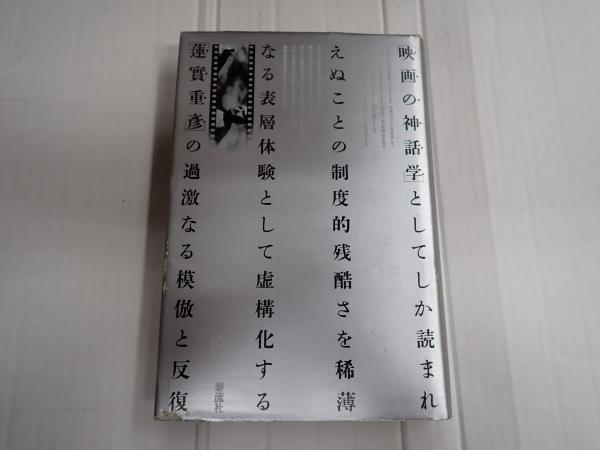 「映画の神話学」としてしか読まれ
えぬことの制度的残酷さを稀薄
なる表層体験として虚構化する
「蓮實重彦」の過激なる模倣と反復。
泰流社